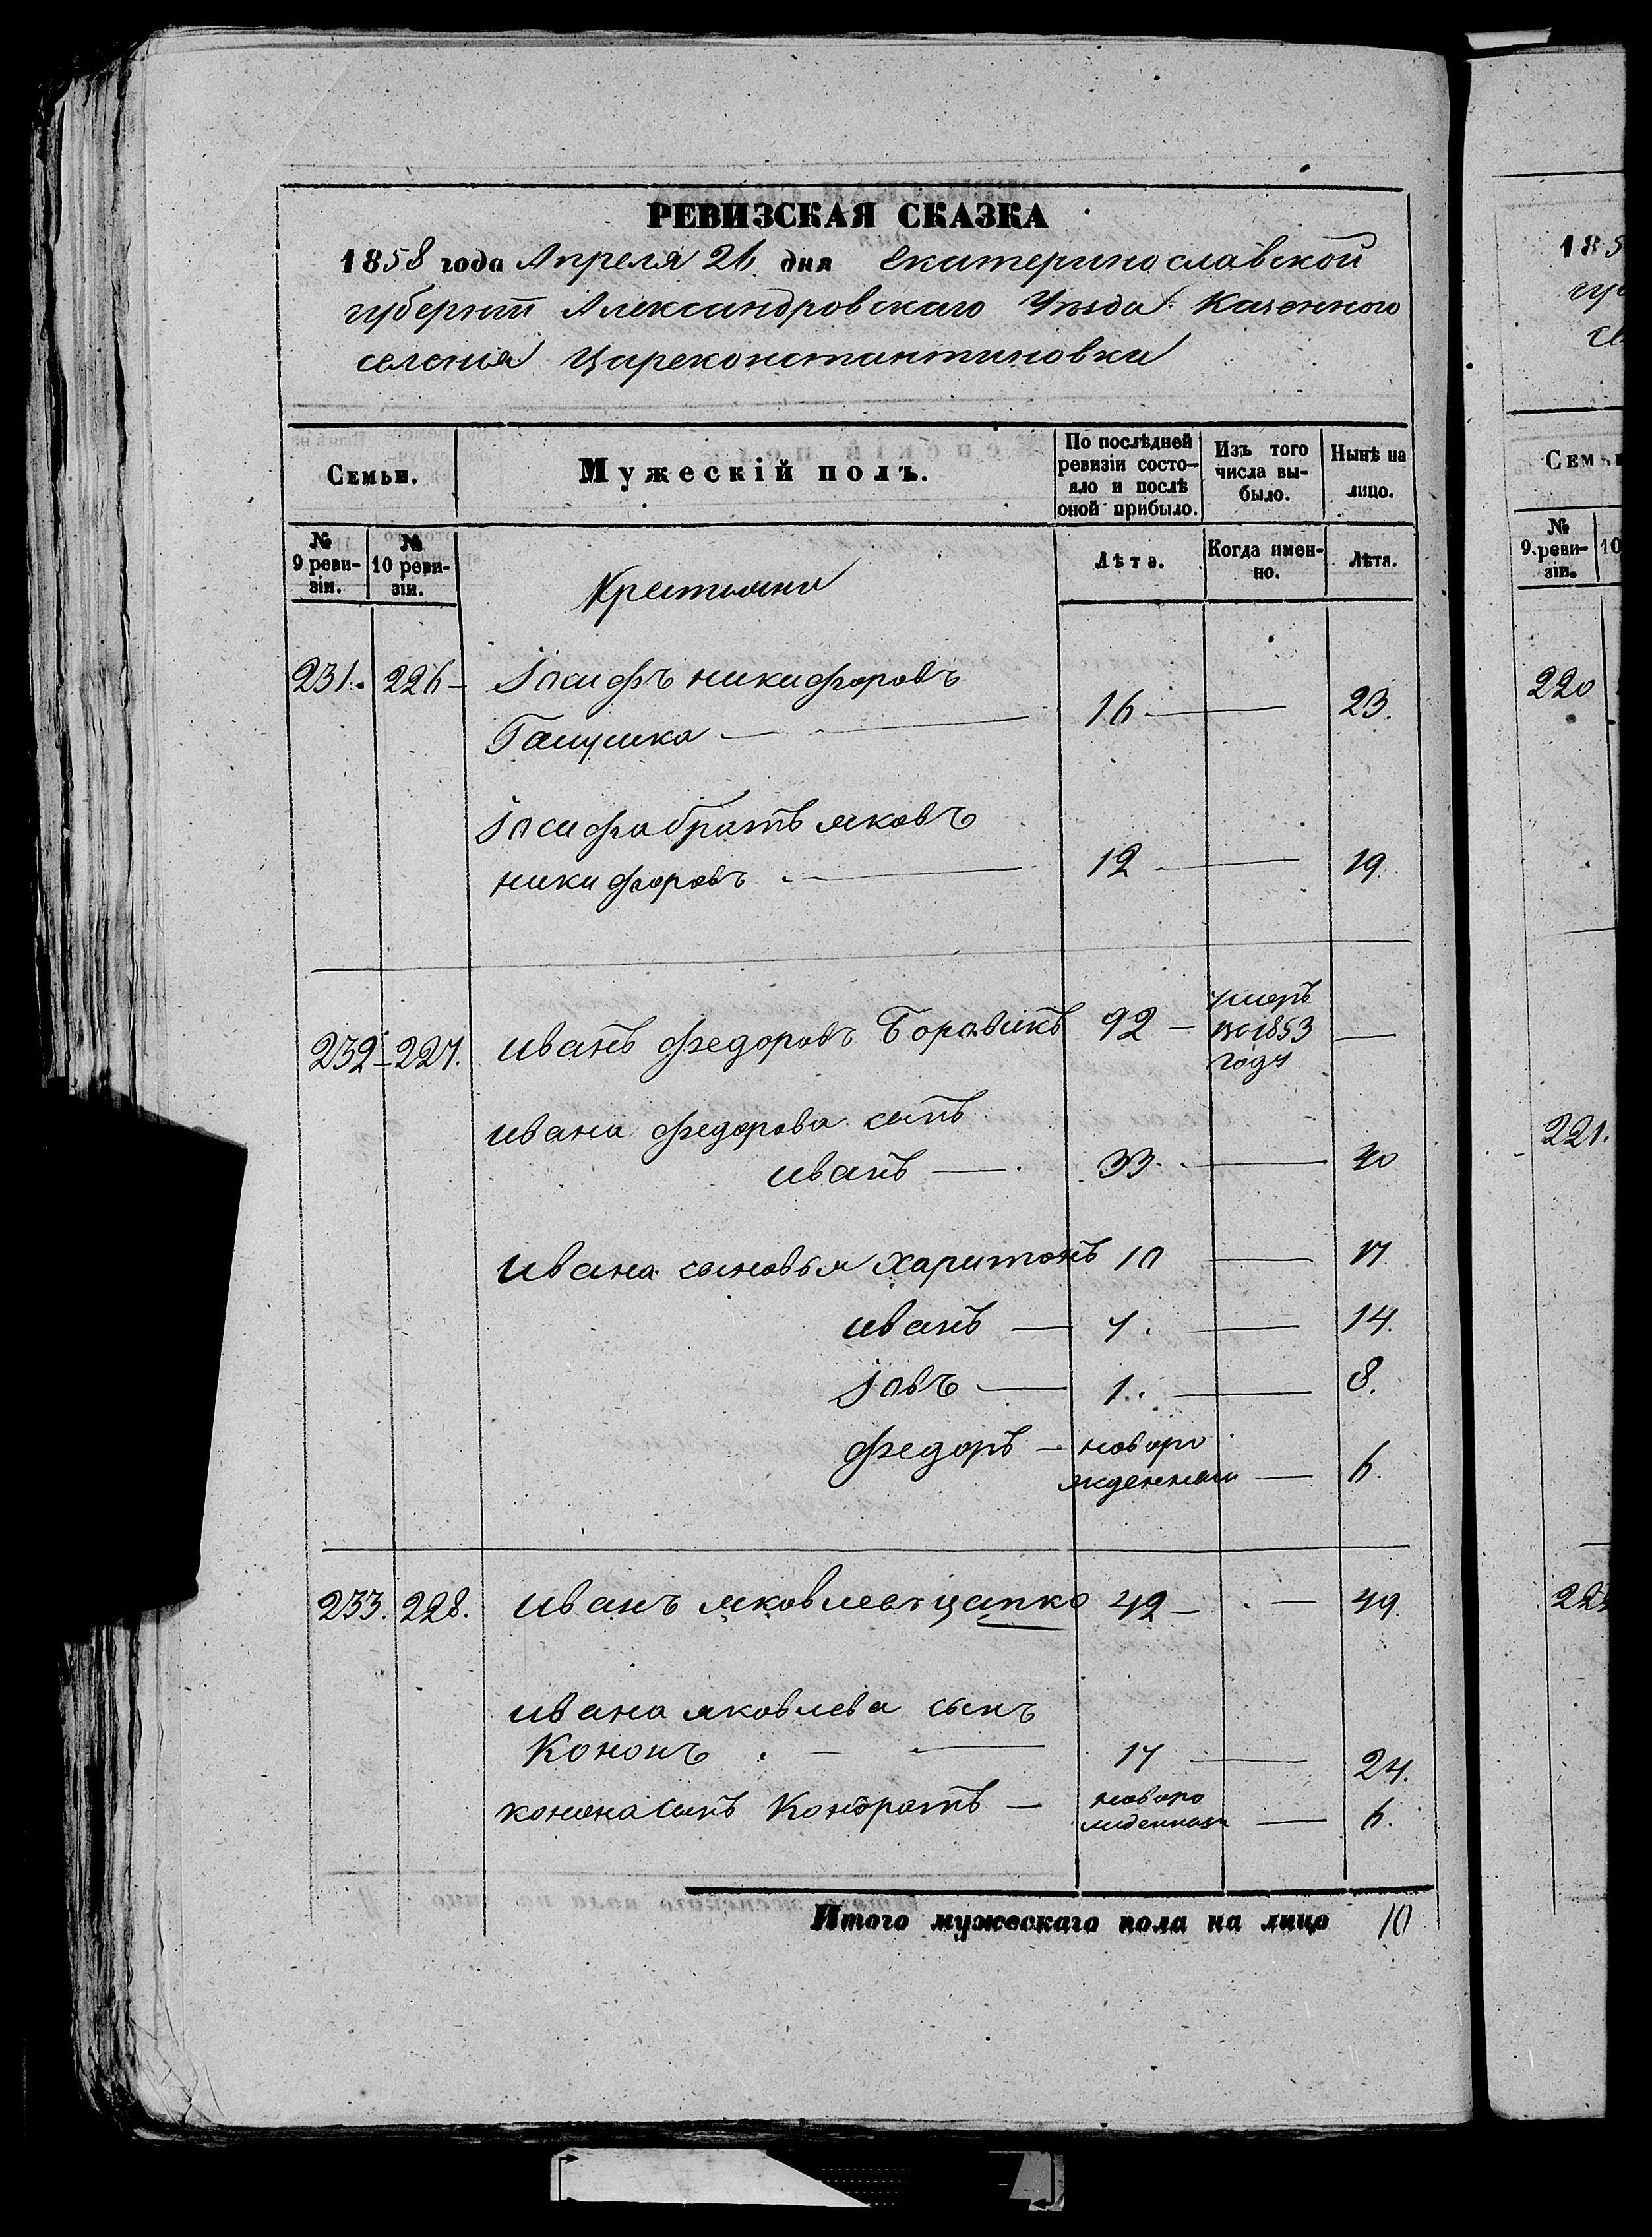 РЕВИЗСКАЯ СКАЗКА
1858 года Апреля 26 дня Екатеринославской
губерніи Александровскаго Уѣзда Казенного
селенія Цареконстантиновки
Семьи. Мужескій полъ. По послѣдней ревизіи состояло и послѣ оной прибыло. Изъ того числа выбыло. Нынѣ на лицо.
№ 9 ревизіи. № 10 ревизіи. Крестьяни Лѣта. Когда именно. Лѣта.
231. 226 Іосифъ никифоровъ
16 23.
Іосифа братъ яковъ
никифоровъ 12 19
232 227. иванъ федоровъ Боравикъ 92 умеръ
во 1853
году
ивана федорова сынъ
иванъ 33 40
ивана сыновья харитонъ 10 17
иванъ 7. 14.
Іовъ 1. 8.
федоръ новоро
жденный 6.
233. 228. иванъ яковлевъ цапко 42 49.
ивана яковлева сынъ
Кононъ 17 24.
конона сынъ Кондратъ новоро
жденный 6.
Итого мужескаго пола на лицо 10
185
Семьи
№ 9 ревизіи. 10
220
221.